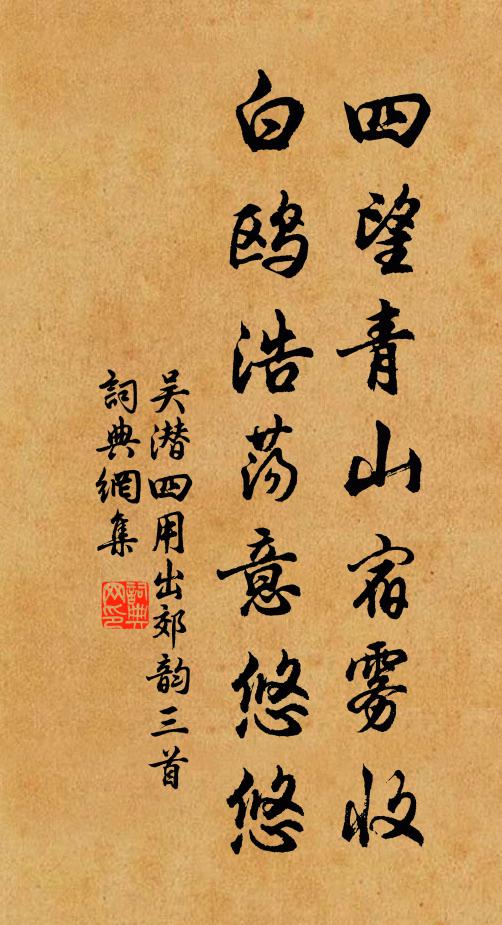 四望青山宿雾收
白鸥浩荡意悠悠
吴潜四用出郊韵三首
詞典網集
詞典网印